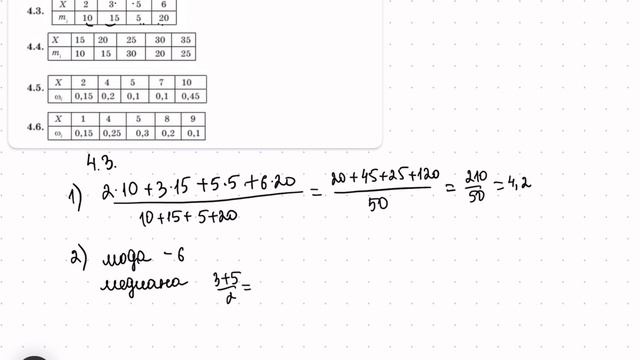 4.3. X 2 3· ·5 6
mᵢ 10 15 5 20
4.4. X 15 20 25 30 35
mᵢ 10 15 30 20 25
4.5. X 2 4 5 7 10
ωᵢ 0,15 0,2 0,1 0,1 0,45
4.6. X 1 4 5 8 9
ωᵢ 0,15 0,25 0,3 0,2 0,1
4.3.
1) (2·10+3·15+5·5+6·20)/(10+15+5+20) = (20+45+25+120)/50 = 210/50 = 4,2
2) мода - 6
медиана (3+5)/2 =